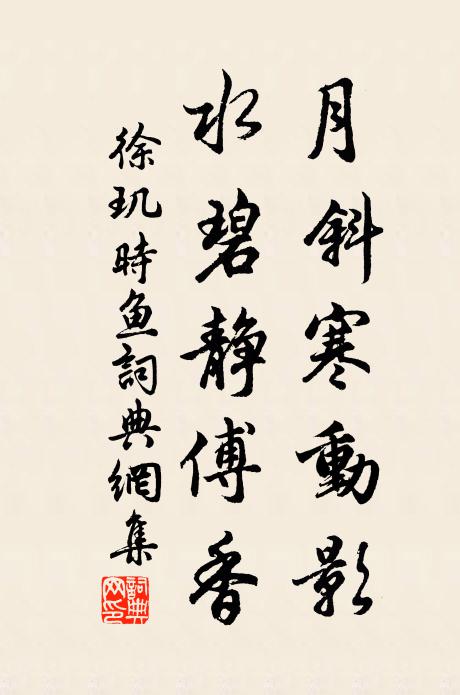 月斜寒動影
水碧静傅香
徐玑時鱼詞典網集
詞典网印